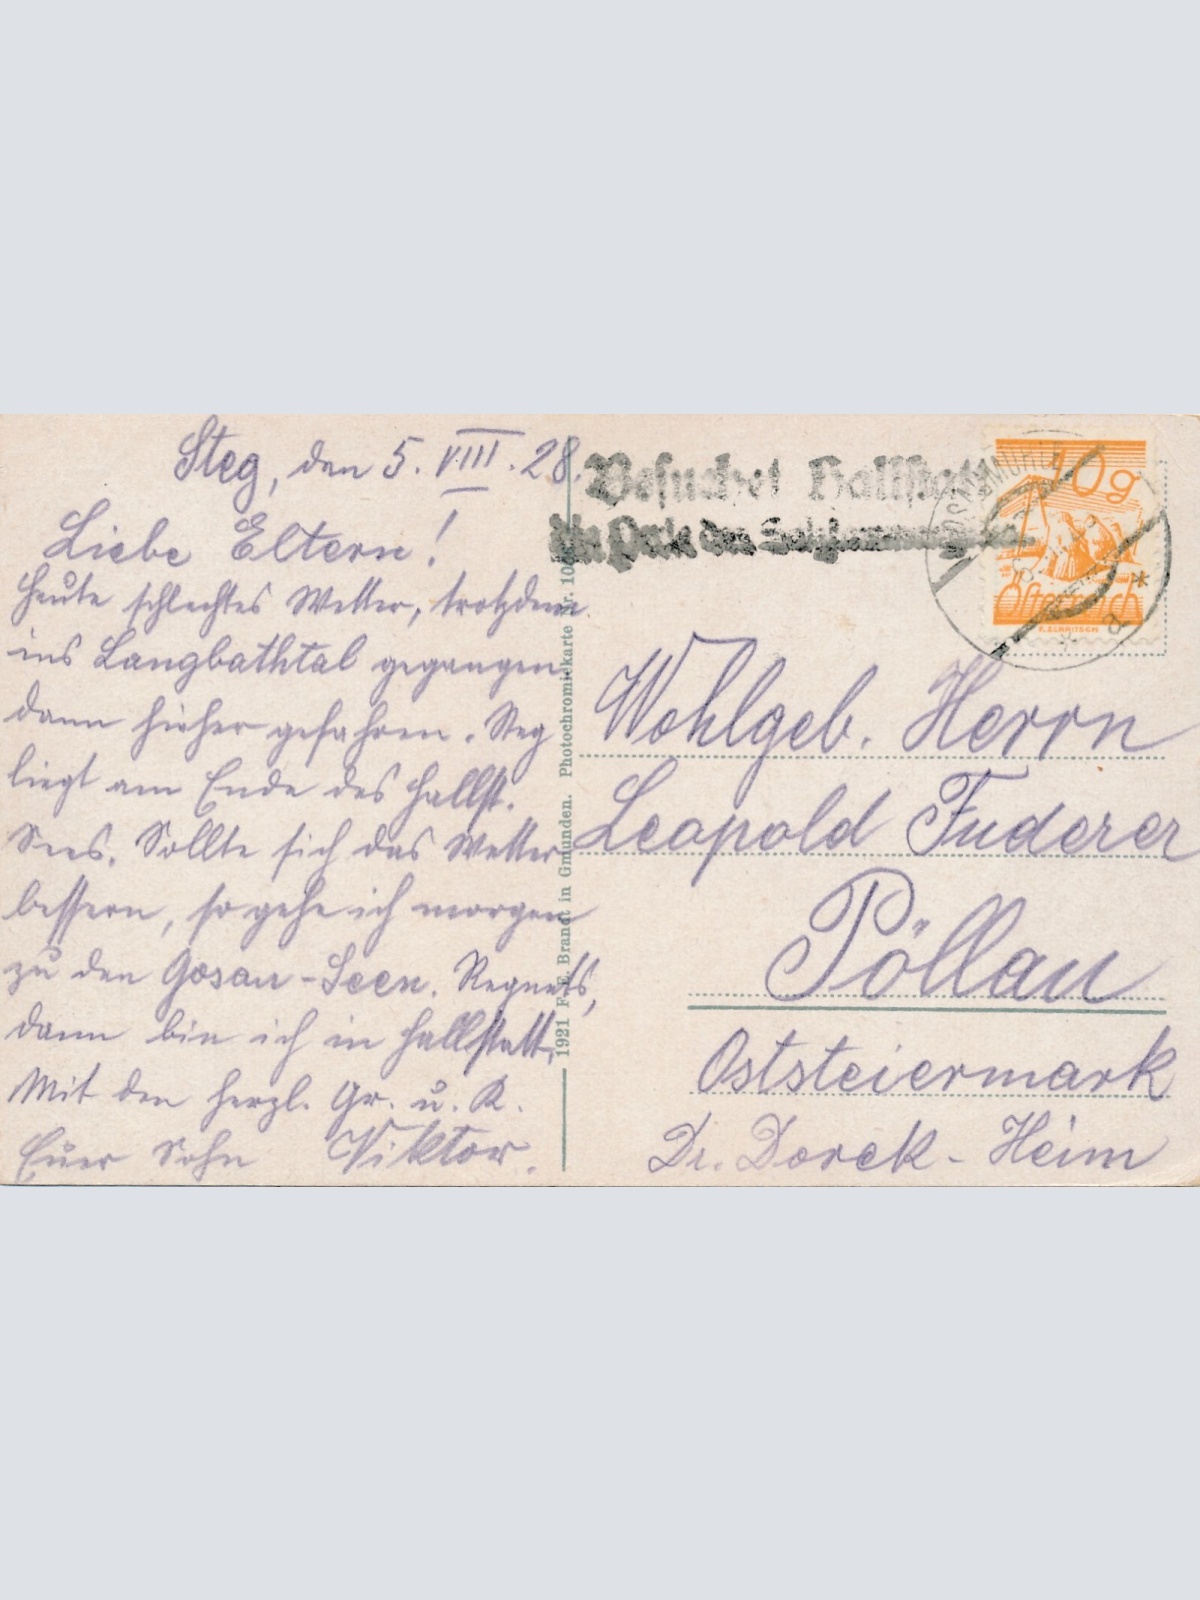 Steg, den 5. VIII. 28.
Liebe Eltern!
Heute schlechtes Wetter, trotzdem
ins Langbathtal gegangen
dann hieher gefahren. Steg
liegt am Ende des Hallst.
Sees. Sollte sich das Wetter
bessern, so gehe ich morgen
zu den Gosau-Seen. Regnets,
dann bin ich in Hallstatt.
Mit den herzl. Gr. u. K.
Euer Sohn Viktor.
1921 F. E. Brandt in Gmunden. Photochromiekarte Nr.
Besuchet Hallstatt
die Perle des Salzkammergutes
10g
Österreich
Wohlgeb. Herrn
Leopold Fuderer
Pöllau
Oststeiermark
Dr. Dorek-Heim